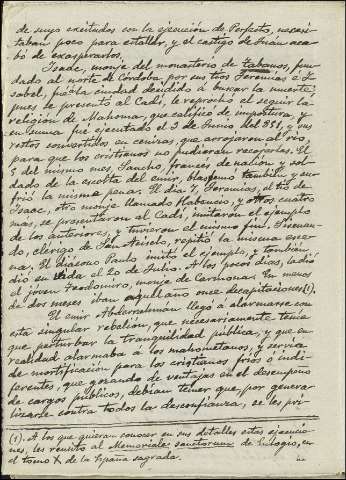 de suyo excitados con la ejecución de Perfecto, necesi-
taban poco para estallar, y el castigo de Juan aca-
bó de exasperarlos.
Isaac, monje del monasterio de tabanos, fun-
dado al norte de Córdoba, por sus tios Jeremías é I-
sabel, fué á la ciudad decidido á buscar la muerte,
pues se presentó al Cadí, le reprochó el seguir la
religión de Mahoma, que calificó de impostura, y
en suma fué ejecutado el 3 de Junio del 851, y sus
restos convertidos en cenizas, que arrojaron al río
para que los cristianos no pudieran recogerlas. El
5 del mismo mes, Sancho, francés de nación y sol-
dado de la escolta del emir, blasfemó también y su-
frió la misma pena. El día 7, Jeremías, el tío de
Isaac, otro monje llamado Habencio, y otros cuatro
mas, se presentaron al Cadí, imitaron el ejemplo
de los anteriores, y tuvieron el mismo fin. Sisenan-
do, clérigo de San Acisclo, repitió la misma esce-
na. El diácono Paulo imitó el ejemplo, y también
dió su vida el 20 de Julio. A los pocos días, la dió
el joven Teodomiro, monje de Carmona. En menos
de dos meses iban aquel año once decapitaciones (1).
El emir Abderrahman llegó á alarmarse con
esta singular rebelión, que necesariamente tenía
que perturbar la tranquilidad pública; y que en
realidad alarmaba á los mahometanos, y servía
de mortificación para los cristianos fríos é indi-
ferentes, que gozando de ventajas en el desempeño
de cargos públicos, debían temer que, por genera-
lizarse contra todos la desconfianza, se les pri-
(1). A los que quieran conocer en sus detalles estas ejecucio-
nes, les remito al Memoriale sanctorum de Eulogio, en
el tomo X de la España sagrada.